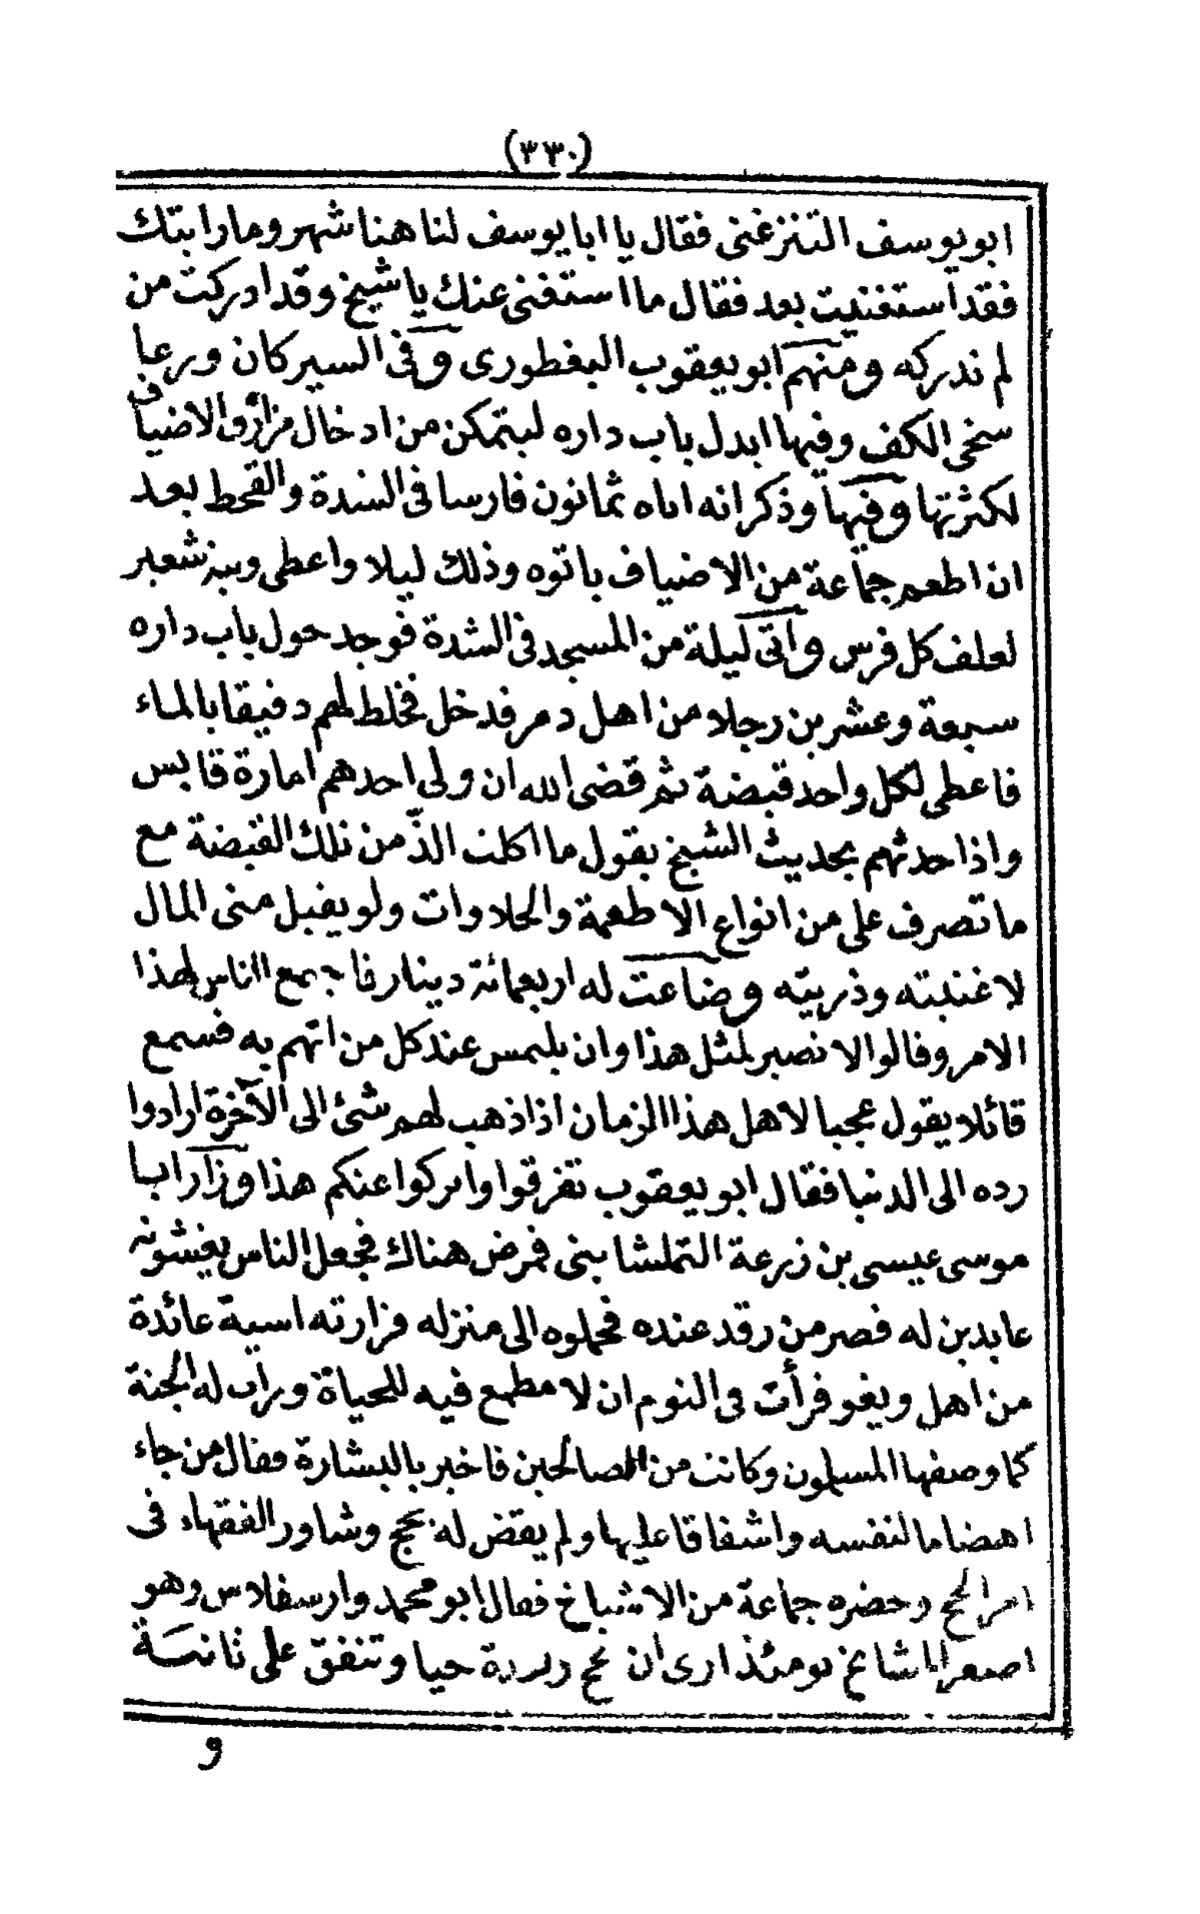 (٣٣٠)
ابو يوسف التنزغنى فقال يا ابا يوسف لنا هنا شهر وما رايتك
فقد استغنيت بعد فقال ما استغنى عنك يا شيخ وقد ادركت من
لم ندركه ومنهم ابو يعقوب البغطورى وفى السير كان ورعا
سخى الكف وفيها ابدل باب داره ليتمكن من ادخال مزارق الاضياف
لكثرتها وفيها وذكر انه اتاه ثمانون فارسا فى الشدة والقحط بعد
ان اطعم جماعة من الاضياف باتوه وذلك ليلا واعطى ويبة شعير
لعلف كل فرس واتى ليلة من المسجد فى الشدة فوجد حول باب داره
سبعة وعشرين رجلا من اهل دمر فدخل فخلط لهم دقيقا بالماء
فاعطى لكل واحد قبضة ثم قضى الله ان ولى احدهم امارة قابس
واذا حدثهم بحديث الشيخ يقول ما اكلت الذّ من تلك القبضة مع
ما تصرف على من انواع الاطعمة والحلاوات ولو يقبل منى المال
لاغنيته وذريته وضاعت له اربعمائة دينار فاجتمع الناس لهذا
الامر وقالوا لا نصبر لمثل هذا وان يلتمس عند كل من اتهم به فسمع
قائلا يقول عجبا لاهل هذا الزمان اذا ذهب لهم شئ الى الآخرة ارادوا
رده الى الدنيا فقال ابو يعقوب تفرقوا واتركوا عنكم هذا وزار ابا
موسى عيسى بن زرعة التملشايتى فمرض هناك فجعل الناس يغشونه
عايدين له فصر من رقد عنده فحملوه الى منزله فزارته اسية عائدة
من اهل ويغو فرأت فى النوم ان لا مطمع فيه للحياة ورات له الجنة
كما وصفها المسلمون وكانت من الصالحين فاخبر بالبشارة فقال من جاء
اهضاما لنفسه واشفاقا عليها ولم يقض له بحج وشاور الفقهاء فى
امر الحج وحضره جماعة من الاشياخ فقال ابو محمد وارسفلاس وهو
اصغر المشايخ يومئذ ارى ان تحج وريدة حيا وتنفق على تانسة
و